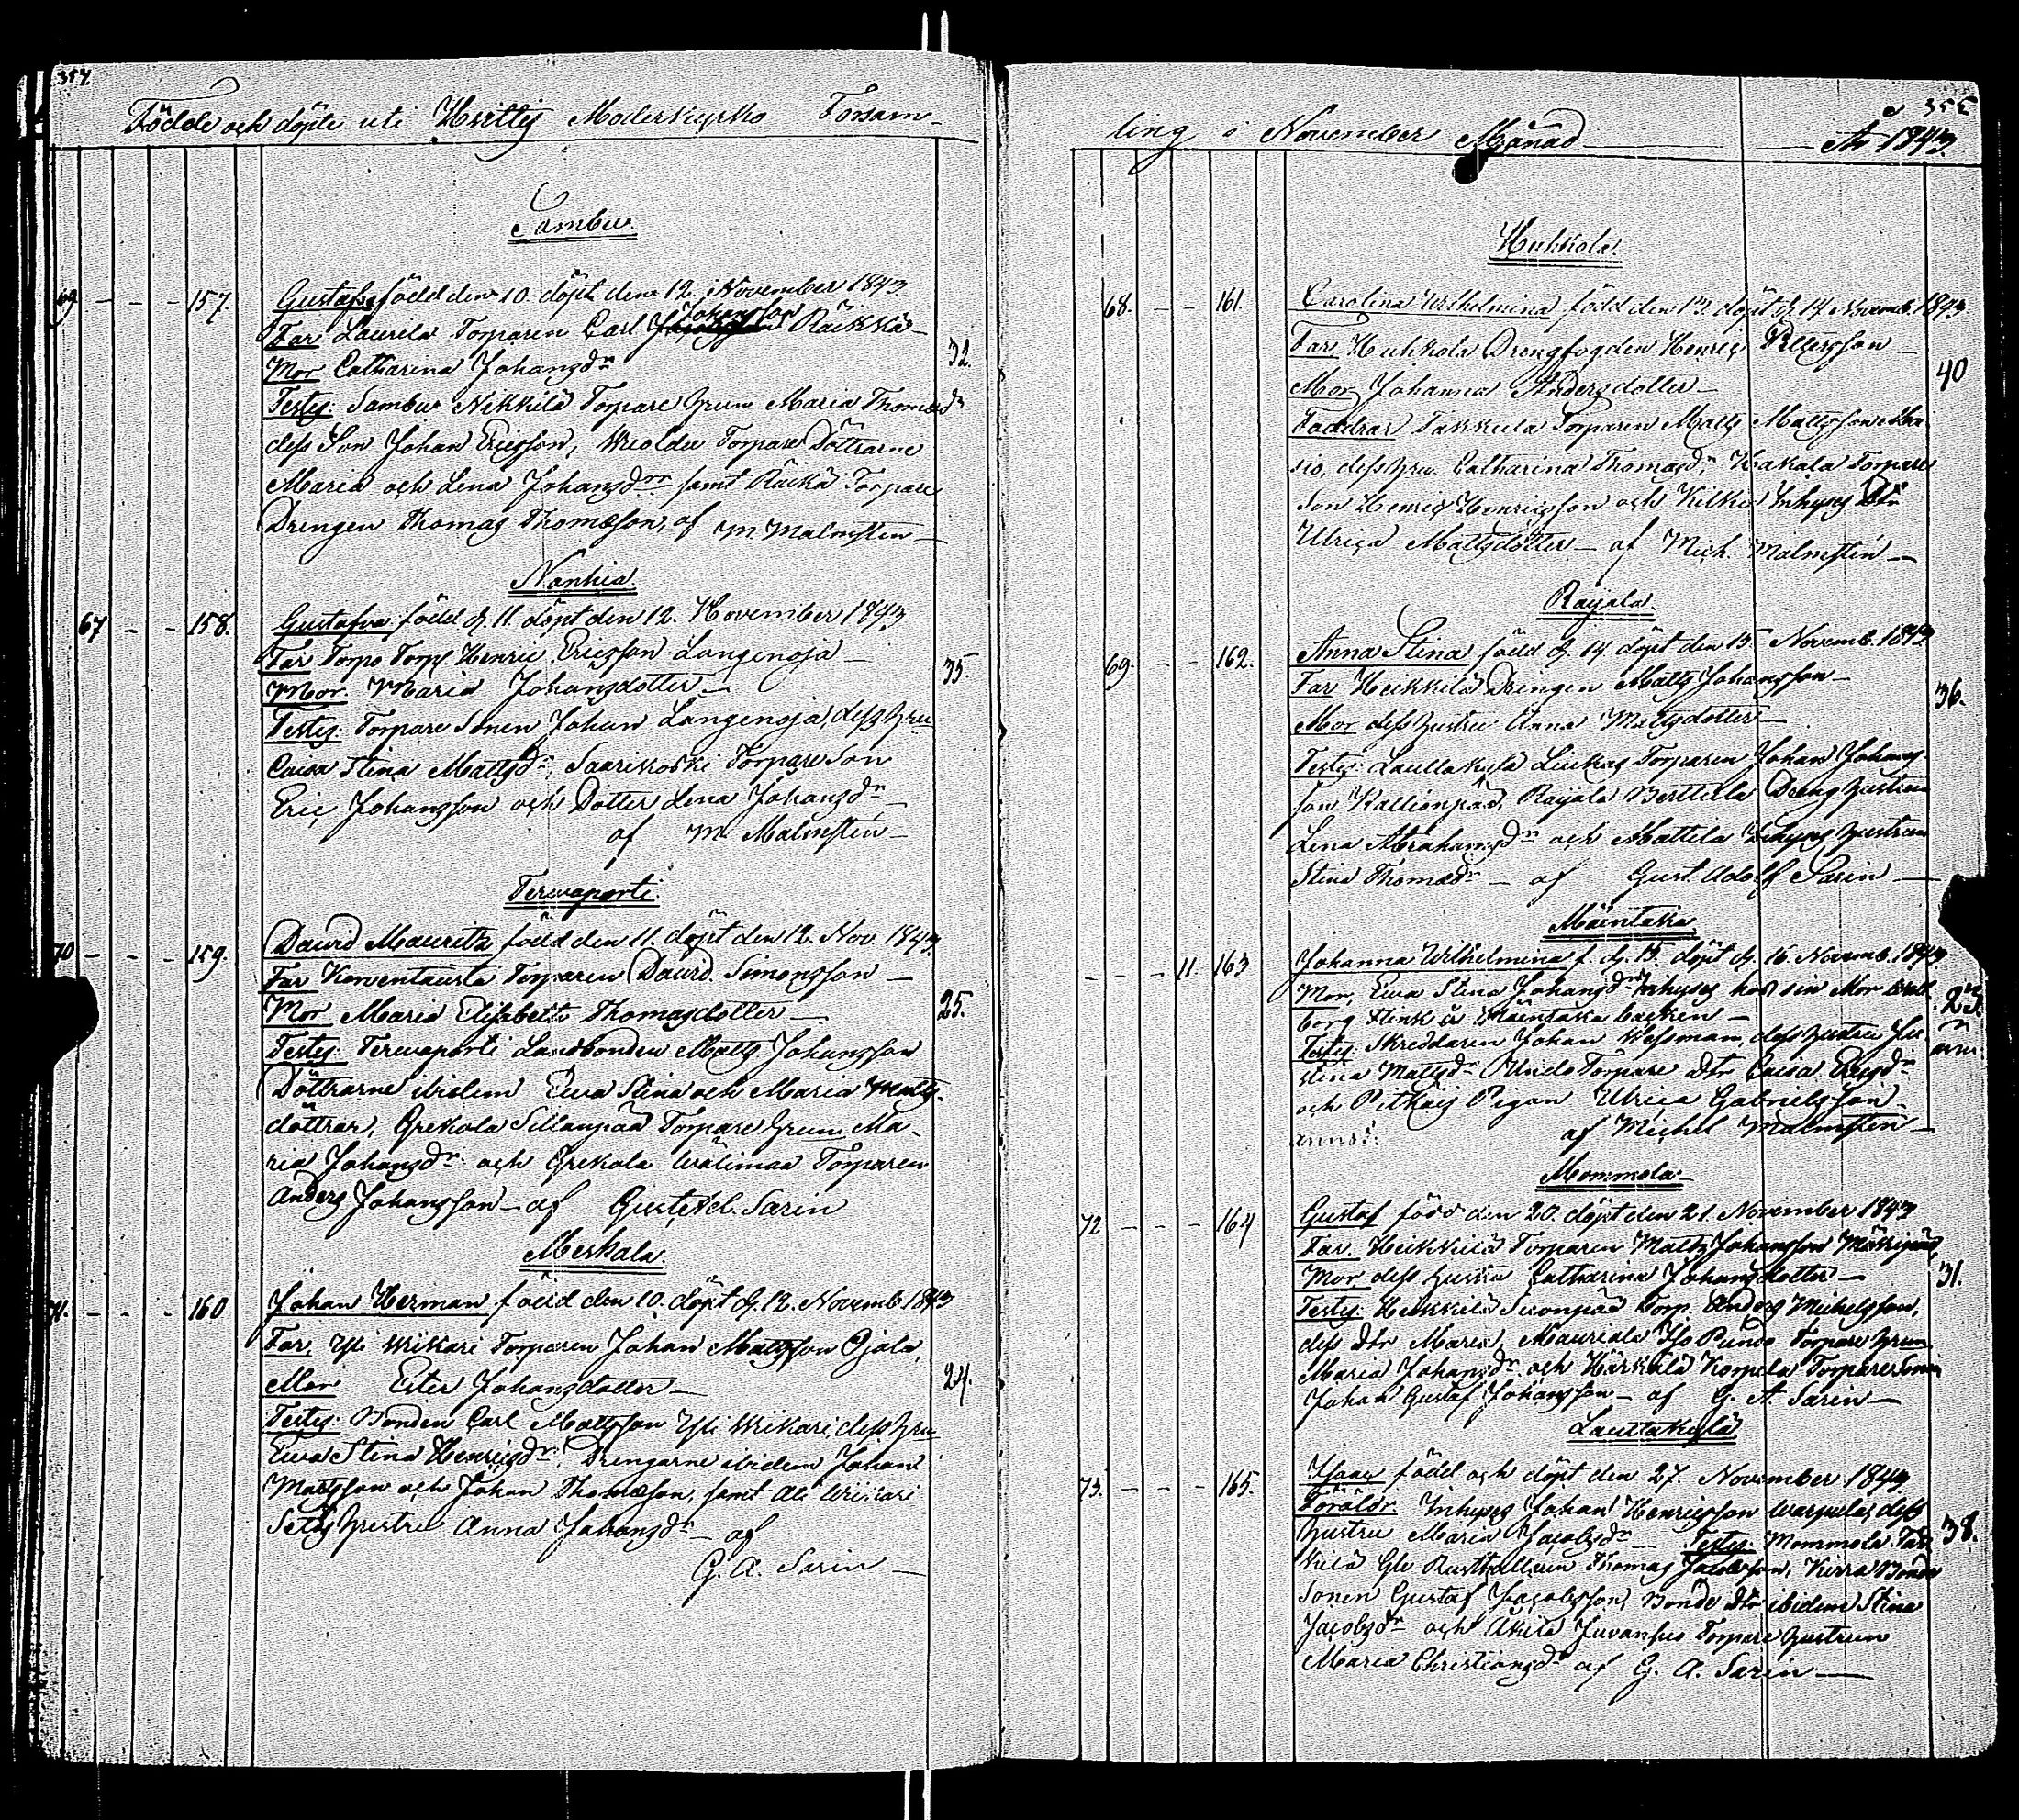 354.
Födde och döpte uti Hvittis Moderkyrko Forsam-
Sambu.
69 - - - 157. Gustaf född den 10. döpt den 12. November 1843.
Far Laurila Torparen Carl Johansson Räikkä
Mor Catharina Johansdr 32.
Testes: Sambu Nikkilä Torpare hrun Maria Thomasdr
dess Son Johan Ericsson, Torpare Döttrarne
Maria och Lena Johansdrar samt Räikä Torpare
Drengen Thomas Thomasson, af M Malmsten
Nankia.
67 - - 158. Gustafva född d. 11. döpt den 12. November 1843
Far Torpo Torp. Henric Ericsson Langenoja 35.
Mor. Maria Johansdotter
Testes: Torpare Sonen Johan Langenoja, dess hru
Caisa Stina Mattsdr, Saarikoski Torpare Son
Eric Johansson och Dotter Lena Johansdr
af M Malmsten
Terwaporti
70 - - - 159. David Mauritz född den 11. döpt den 12. Nov. 1843.
Far Konventausta Torparen David Simonsson
Mor Maria Elisabeth Thomasdotter 25.
Testes: Terwaporti Landbonden Matts Johansson
Döttrarne ibidem Ewa Stina och Maria Matts-
döttrar, Grekola Sillanpää Torpare hrun Ma-
ria Johansdr och Grekola Wälimaa Torparen
Anders Johansson af Gust. Ad. Sarin
Meskala.
71. - - - 160 Johan Herman född den 10. döpt d. 12. Novemb. 1843
Far, Yli Wikari Torparen Johan Mattsson Ojala,
Mor Ester Johansdotter 24.
Testes: Bonden Carl Mattsson Yli Wikari, dess hru
Ewa Stina Henricsdr, Drengarne ibidem Johan
Mattsson och Johan Thomasson, samt Ali Wikari
hustru Anna Johansdr af
G. A. Sarin
355
ling i November Månad År 1843.
Huhkola.
68. - - 161. Carolina Wilhelmina född den 13. döpt d. 14 Novemb. 1843
Far Huhkola Drengfogden Henric Pettersson
Mor Johanna Andersdotter 40
Faddrar Takkula Torparen Matts Mattsson
dess hru Catharina Thomasdr, Kakala Torpare
Son Henric Henricsson och Kilkii Inhyses Dtr
Ulrica Mattsdotter af Mich. Malmsten
Raijala.
69. - - 162. Anna Stina född d. 14 döpt den 15 Novemb. 1843
Far Heikkilä Drengen Matts Johansson
Mor dess hustru Anna Mattsdotter 36.
Testes: Lauttakylä Liukas Torparen Johan Johans-
son Kallionpää, Raijala Berttula Dreng hustrun
Lena Abrahamsdr och Mattila Inhyses hustrun
Stina Thomasdr af Gust. Adolf Sarin
Mäintaka
- - - 11. 163 Johanna Wilhelmina f. d. 15. döpt d. 16. Novemb. 1843
Mor, Ewa Stina Johansdr Inhyses hos sin Mor Wall-
borg Flink å Mäintaka backen 23
Testes: Skreddaren Johan Wessman, dess hustru
stina Mattsdr Punds Torpare dtr Caisa Ericsdr
och Pitkäis Pigan Ulrica Gabrielsson
af Michel Malmsten
Mommola
72 - - - 164 Gustaf född den 20. döpt den 21. November 1843
Far. Heikkilä Torparen Matts Johansson Mäkipää,
Mor dess hustru Catharina Johansdotter 31.
Testes: Heikkilä Suonpää Torp. Anders Michelsson,
dess dtr Maria, Mauriala Iso Pundo Torpare hrun
Maria Johansdr och Härkälä Korpela Torpare Sonen
Johan Gustaf Johansson af G. A. Sarin
Lauttakylä
73. - - - 165. Isaac född och döpt den 27. November 1843
Föräldr. Inhyses Johan Henricsson Warpula, dess
hustru Maria Jacobsdr Testes: Mommola 38.
Rusthållaren Thomas Jacobsson, Kerra Bonde
Sonen Gustaf Jacobsson, Bonde Dtr ibidem Stina
Jacobsdr och Äkilä Juvansuo Torpare hustrun
Maria Christiansdr af G. A. Sarin